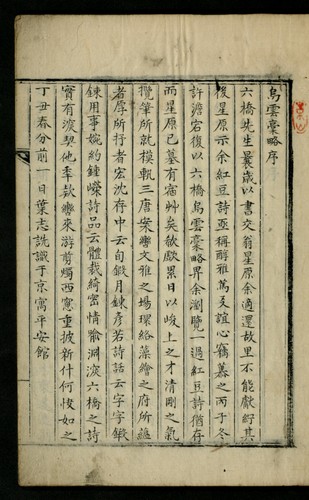 烏雲稾略序
六橋先生曩歲以書交翁星原余適還故里不能獻紵其
後星原示余紅豆詩亟稱醇雅篤友誼心竊慕之丙子冬
許澹宕復以六橋烏雲稾略畀余瀏覽一過紅豆詩猶存
而星原已墓有宿艸矣欷歔累日以峻上之才清剛之氣
攬筆所就模軌三唐案轡文雅之場環絡藻繪之府所蘊
者厚所抒者宏沈存中云旬鍛月鍊彥若詩話云字字鍛
鍊用事婉約鍾嶸詩品云體裁綺密情喻淵深六橋之詩
實有深契他季欵轡來游剪燭西窻重披新什何快如之
丁丑春分前一日葉志詵識于京寓平安館